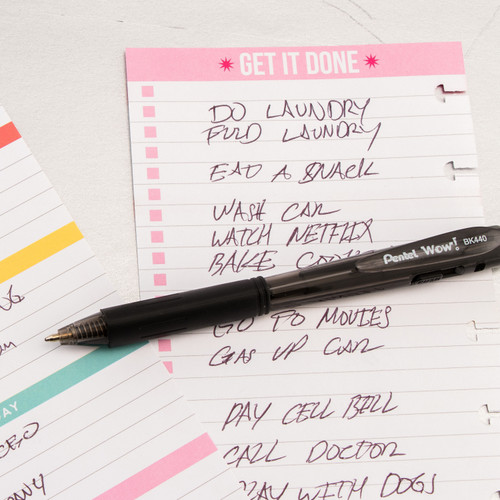 GET IT DONE
DO LAUNDRY
FOLD LAUNDRY
EAT A SNACK
WASH CAR
WATCH NETFLIX
BAKE
Pentel Wow! BK440
GO TO MOVIES
GAS UP CAR
PAY CELL BILL
CALL DOCTOR
PLAY WITH DOGS
AY